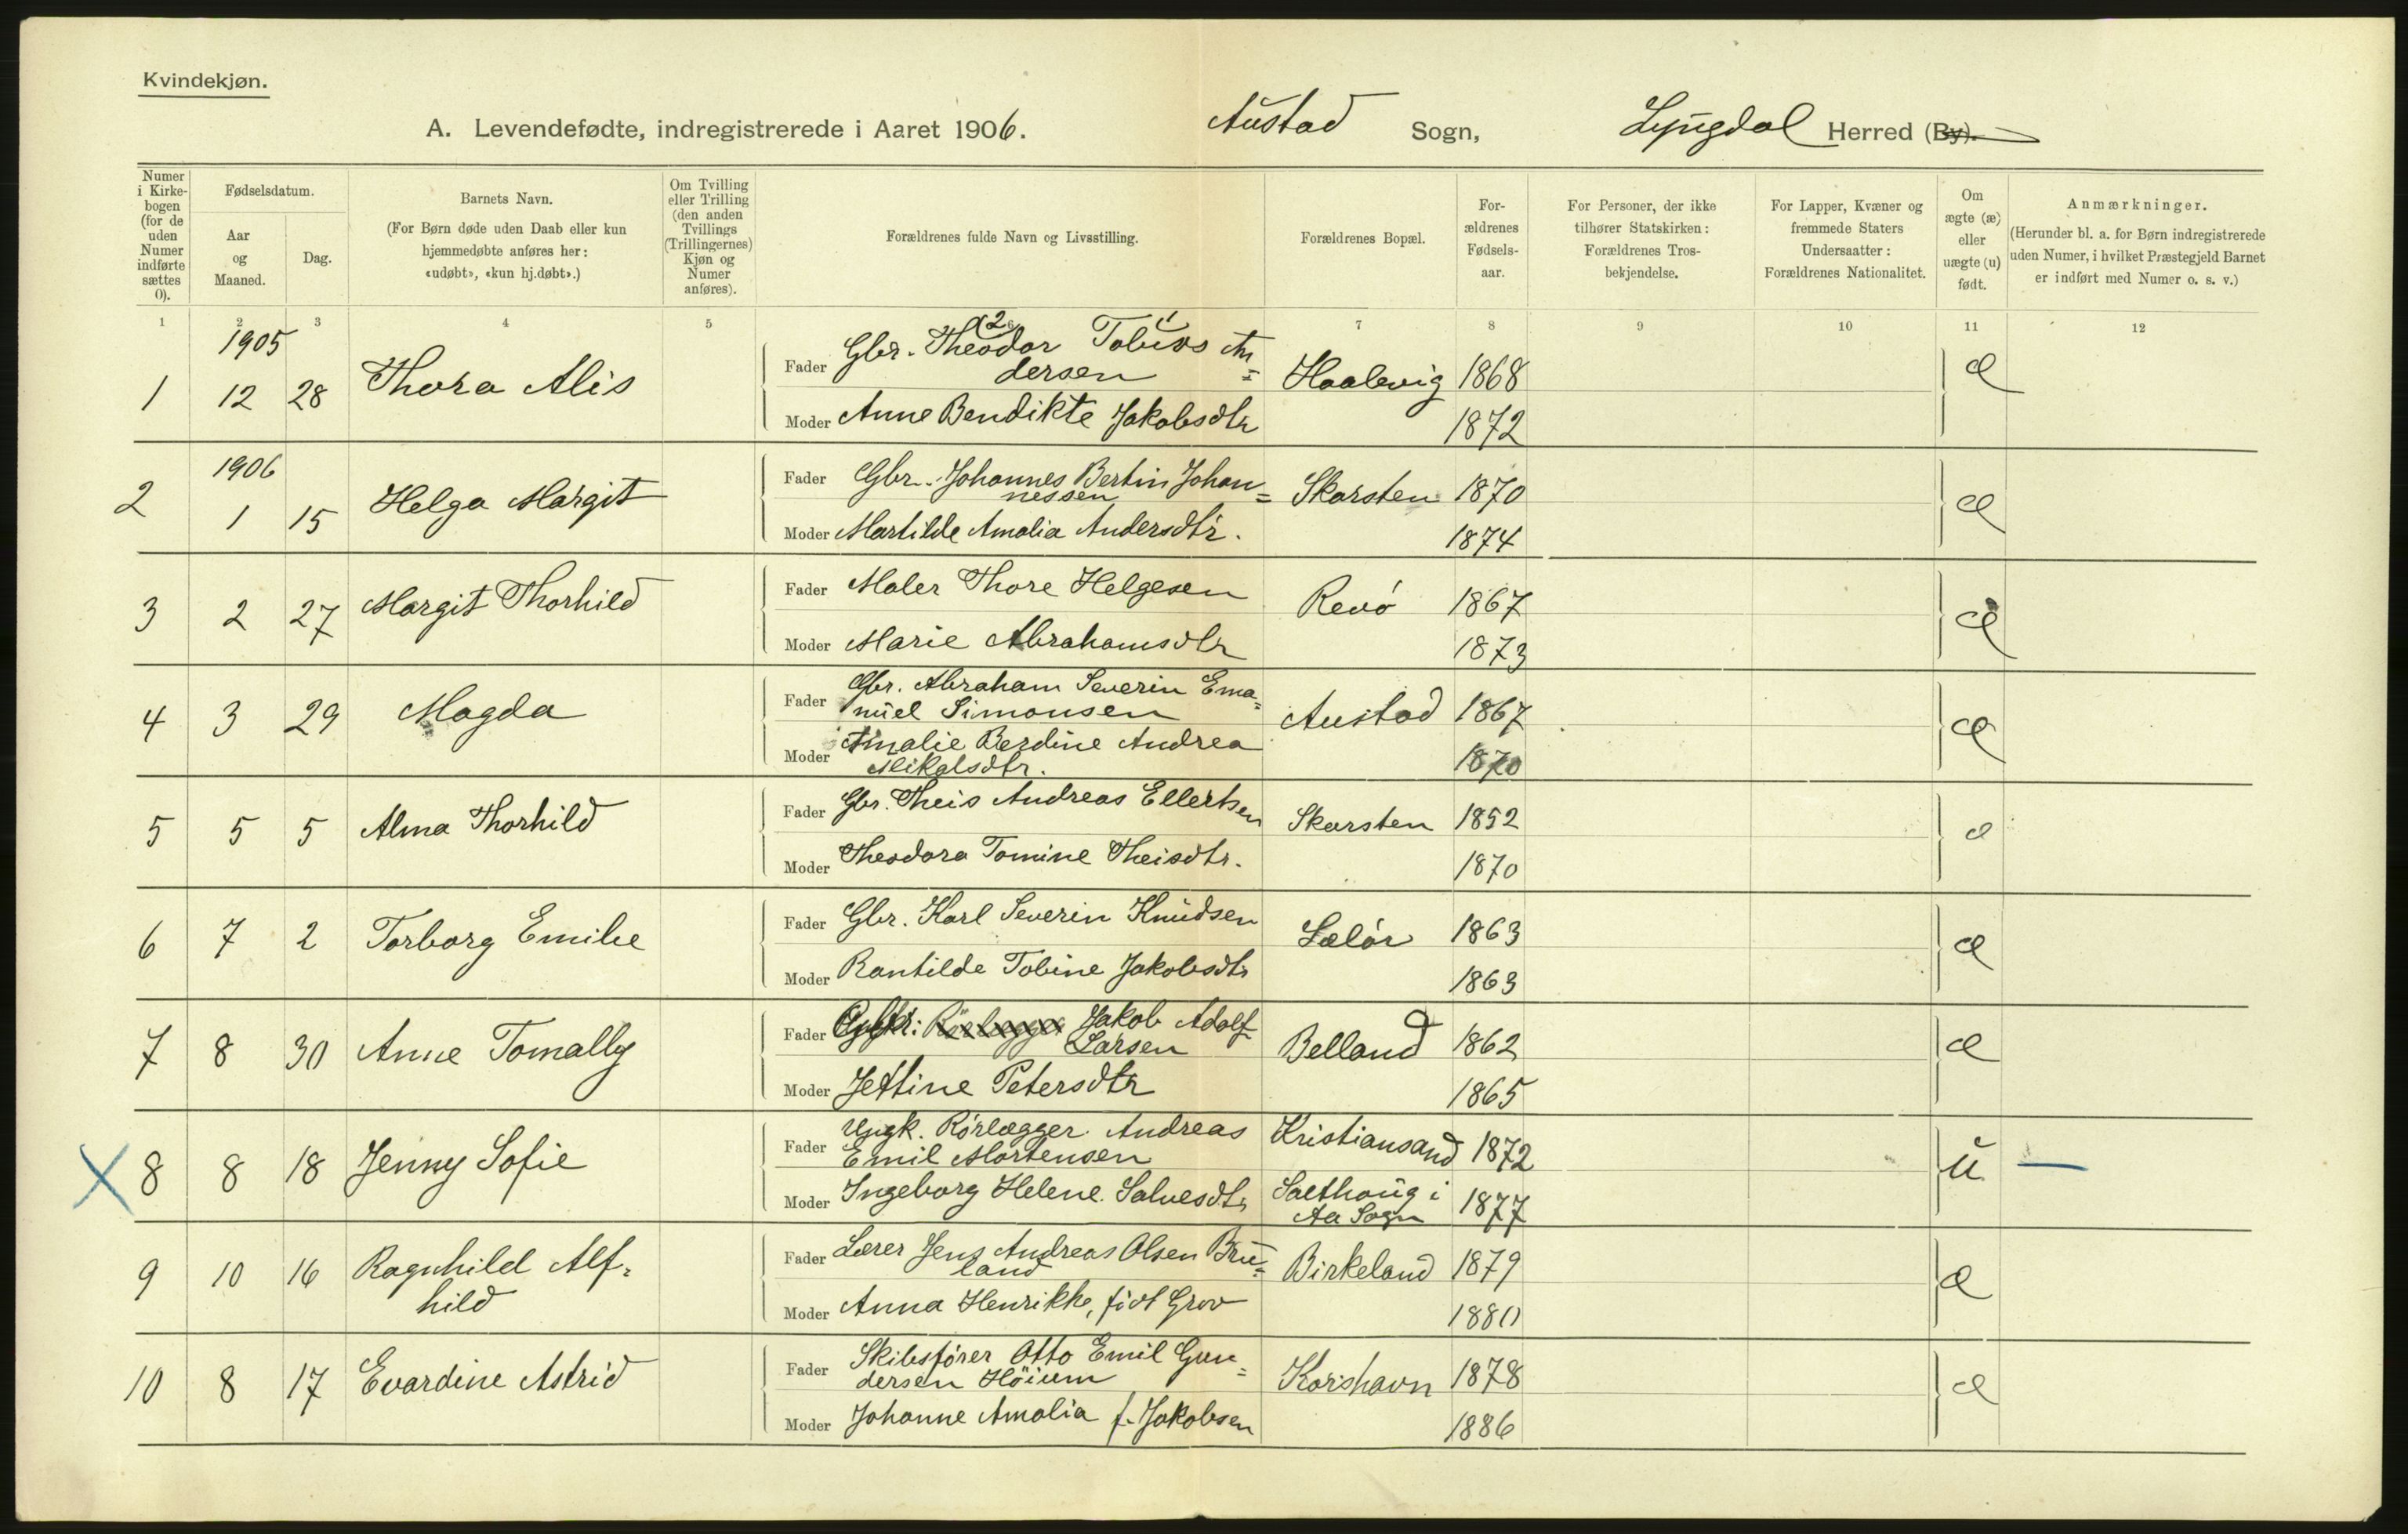 Kvindekjøn.
A. Levendefødte, indregistrerede i Aaret 1906. Austad Sogn, Lyngdal Herred (By).
Numer i Kirkebogen (for de uden Numer indførte sættes 0).
Fødselsdatum.
Aar og Maaned.
Dag.
Barnets Navn.
(For Børn døde uden Daab eller kun hjemmedøbte anføres her: «udøbt», «kun hj.døbt».)
Om Tvilling eller Trilling (den anden Tvillings (Trillingernes) Kjøn og Numer anføres).
Forældrenes fulde Navn og Livsstilling.
Forældrenes Bopæl.
Forældrenes Fødselsaar.
For Personer, der ikke tilhører Statskirken: Forældrenes Trosbekjendelse.
For Lapper, Kvæner og fremmede Staters Undersaatter: Forældrenes Nationalitet.
Om ægte (æ) eller uægte (u) født.
Anmærkninger.
(Herunder bl. a. for Børn indregistrerede uden Numer, i hvilket Præstegjeld Barnet er indført med Numer o. s. v.)
1 2 3 4 5 6 7 8 9 10 11 12
1905
1 12 28 Thora Alis Fader Gbr. Theodor Tobias An=
dersen Haalevig 1868 æ
Moder Anne Bendikte Jakobsdtr 1872
1906
2 1 15 Helga Margit Fader Gbr. Johannes Bertin Johan=
nessen Skarsten 1870 æ
Moder Martilde Amalia Andersdtr. 1874
3 2 27 Margit Thorhild Fader Maler Thore Helgesen Revø 1867 æ
Moder Marie Abrahamsdtr 1873
4 3 29 Magda Fader Gbr. Abraham Severin Ema=
nuel Simonsen Austad 1867 æ
Moder Amalie Berdine Andrea
Mikalsdtr. 1870
5 5 5 Alma Thorhild Fader Gbr. Theis Andreas Ellertsen Skarsten 1852 æ
Moder Theodora Tomine Theisdtr. 1870
6 7 2 Torborg Emilie Fader Gbr. Karl Severin Knudsen Lælør 1863 æ
Moder Rantilde Tobine Jakobsdtr 1863
7 8 30 Anne Tomally Fader Jakob Adolf
Larsen Belland 1862 æ
Moder Jettine Petersdtr 1865
8 8 18 Jenny Sofie Fader Ungk. Rørlægger Andreas
Emil Mortensen Kristiansand 1872 u —
Moder Ingeborg Helene Salvesdtr Salthoug i
Aa Sogn 1877
9 10 16 Ragnhild Alf=
hild Fader Lærer Jens Andreas Olsen Bru=
land Birkeland 1879 æ
Moder Anna Henrikke, født Grov 1880
10 8 17 Evardine Astrid Fader Skibsfører Otto Emil Gun=
dersen Höium Korshavn 1878 æ
Moder Johanne Amalia f. Jakobsen 1886